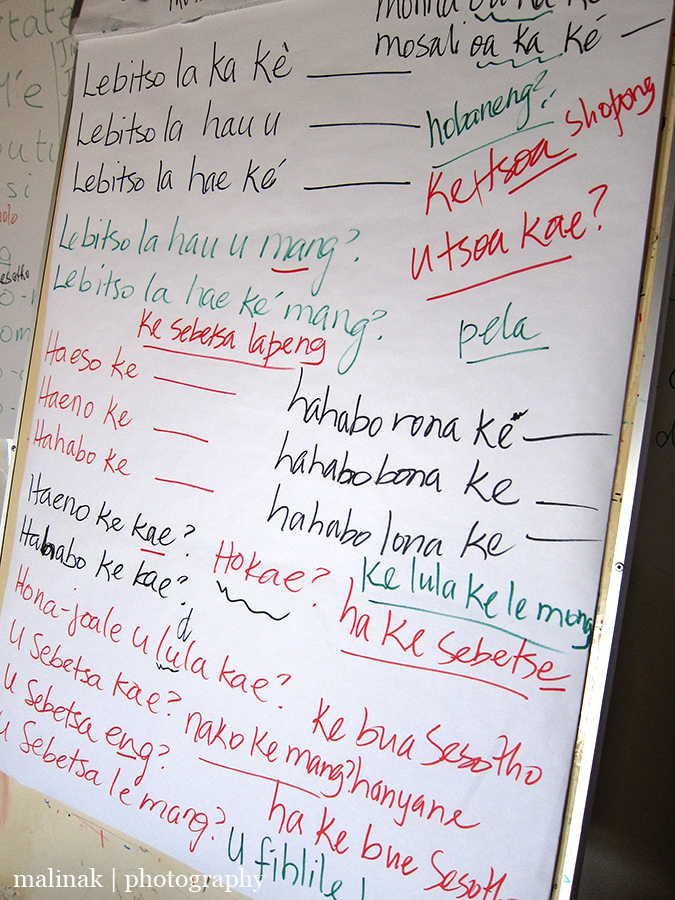 mosali oa ka ké
Lebitso la ka kè
Lebitso la hau u
hobaneng?
Lebitso la hae ké
Ke tsoa shopong
u tsoa kae?
Lebitso la hau u mang?
Lebitso la hae ké mang?
pela
Ke sebetsa lapeng
Haeso ke
Haeno ke
Hahabo ke
hahabo rona ke
hahabo bona ke
hahabo lona ke
Haeno ke kae?
Hahabo ke kae?
Hokae?
Ke lula ke le mong
ha ke sebetse
d
Hona-joale u lula kae?
U sebetsa kae?
U sebetsa eng?
U sebetsa le mang?
ke bua Sesotho
nako ke mang? hanyane
ha ke bue Sesoth
U fihlile
malinak | photography